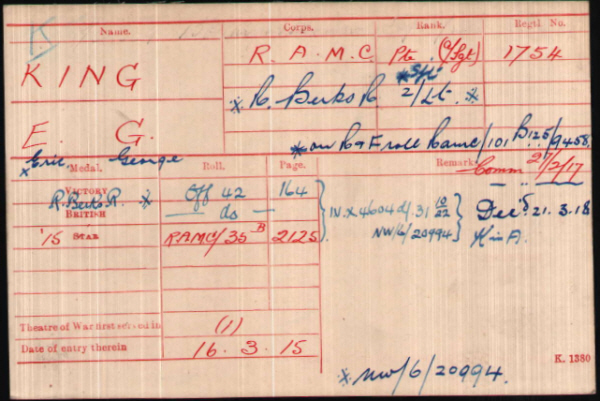 Name. Corps. Rank. Regtl. No.
KING R.A.M.C. Pte (A/Sgt) 1754
* R. Berks R 2/Lt. *
E. G.
* on R & F roll RAMC/101 B125/9458.
* Eric George
Medal. Roll. Page. Remarks
Comm 27/2/17
VICTORY R. Berks R. * Off 42 164
BRITISH — do — IV. X 4604 d/ 31 10/22 Dec'd. 21.3.18
'15 STAR RAMC/35B 2125 NW/6/20994 K in A.
Theatre of War first served in (1)
Date of entry therein 16.3.15
K. 1380
* NW/6/20994.